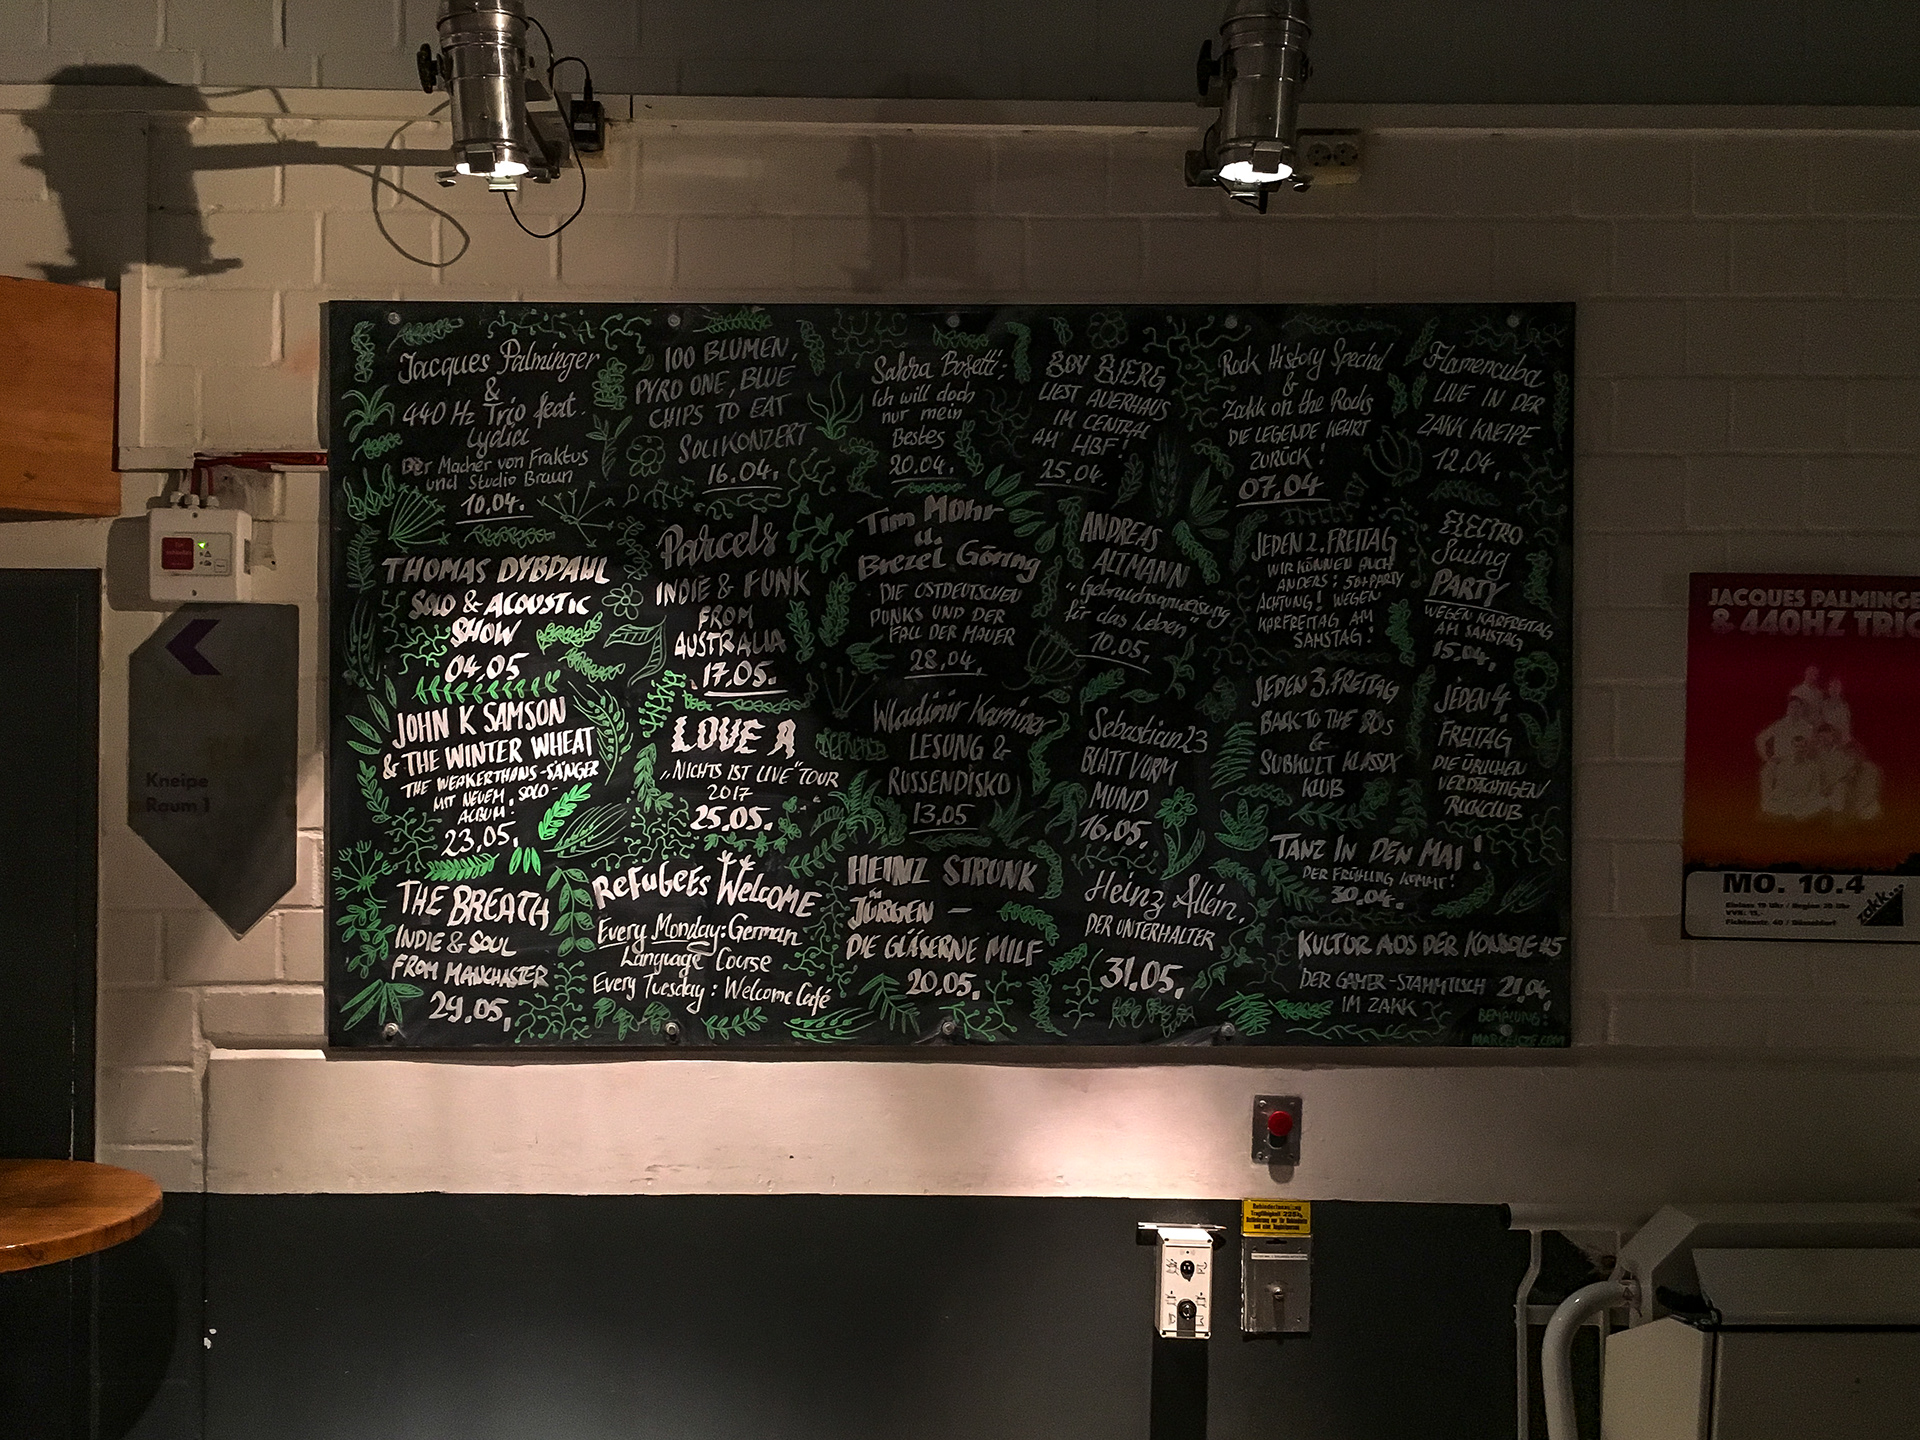 Jacques Palminger
&
440 Hz Trio feat.
Lydia
Der Macher von Fraktus
und Studio Braun
10.04.
THOMAS DYBDAHL
SOLO & ACOUSTIC
SHOW
04.05
JOHN K SAMSON
& THE WINTER WHEAT
THE WEAKERTHANS-SÄNGER
MIT NEUEM SOLO-
ALBUM!
23.05.
THE BREATH
INDIE & SOUL
FROM MANCHASTER
29.05.
100 BLUMEN,
PYRO ONE, BLUE
CHIPS TO EAT
SOLIKONZERT
16.04.
Parcels
INDIE & FUNK
FROM
AUSTRALIA
17.05.
LOVE A
"NICHTS IST LIVE" TOUR
2017
25.05.
ReFuGeEs WeLcome
Every Monday: German
Language Course
Every Tuesday: Welcome Café
Sahra Bosetti:
Ich will doch
nur mein
Bestes
20.04.
Tim Mohr
u.
Brezel Göring
DIE OSTDEUTSCHEN
PUNKS UND DER
FALL DER MAUER
28.04.
Wladimir Kaminer
LESUNG &
RUSSENDISKO
13.05
HEINZ STRUNK
in
JÜRGEN –
DIE GLÄSERNE MILF
20.05.
BOV BJERG
LIEST AUERHAUS
IM CENTRAL
AM HBF!
25.04.
ANDREAS
ALTMANN
"Gebrauchsanweisung
für das Leben"
10.05.
Sebastian23
BLATT VORM
MUND
16.05.
Heinz Allein,
DER UNTERHALTER
31.05.
Rock History Special
&
Zakk on the Rocks
DIE LEGENDE KEHRT
ZURÜCK!
07.04
JEDEN 2. FREITAG
WIR KÖNNEN AUCH
ANDERS: 50+PARTY
ACHTUNG! WEGEN
KARFREITAG AM
SAMSTAG!
JEDEN 3. FREITAG
BACK TO THE 80s
&
SUBKULT KLASSIX
KLUB
TANZ IN DEN MAI!
DER FRÜHLING KOMMT!
30.04.
KULTUR AUS DER KONSOLE #5
DER GAMER-STAMMTISCH 21.04.
IM ZAKK
Flamencuba
LIVE IN DER
ZAKK KNEIPE
12.04.
ELECTRO
Swing
PARTY
WEGEN KARFREITAG
AM SAMSTAG
15.04.
JEDEN 4.
FREITAG
DIE ÜBLICHEN
VERDÄCHTIGEN
ROCKCLUB
BEMALUNG:
Kneipe
Raum 1
JACQUES PALMINGE
& 440HZ TRIO
MO. 10.4
zakk